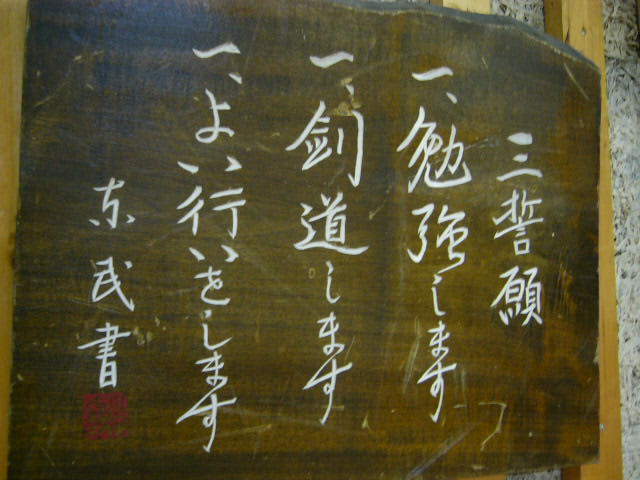 三誓願
一、勉強します
一、剣道します
一、よい行いをします
东民書